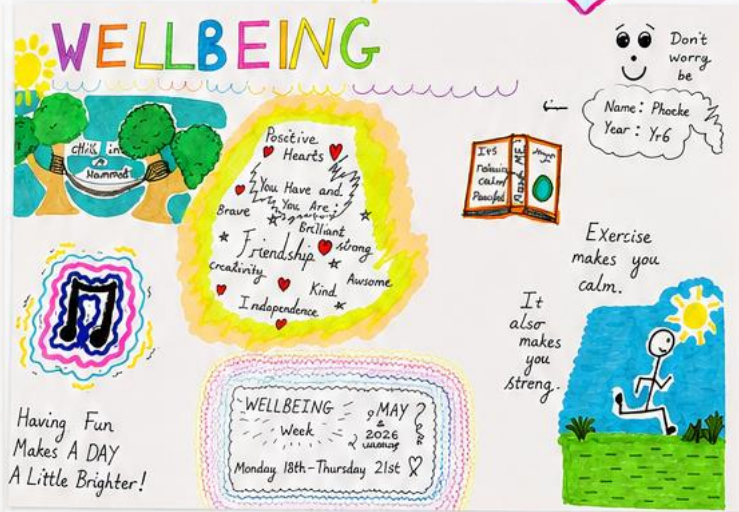 WELLBEING
Don't
worry
be
Name: Phoeke
Year: Yr6
Chill in
A
Hammot
Positive
Hearts
You Have and
You Are:
Brave
Brilliant
Friendship
strong
Creativity
Kind
Awsome
Independence
Its
calm
READ ME
Exercise
makes you
calm.
It
also
makes
you
strong.
Having Fun
Makes A DAY
A Little Brighter!
WELLBEING
Week
MAY
2026
Monday 18th-Thursday 21st